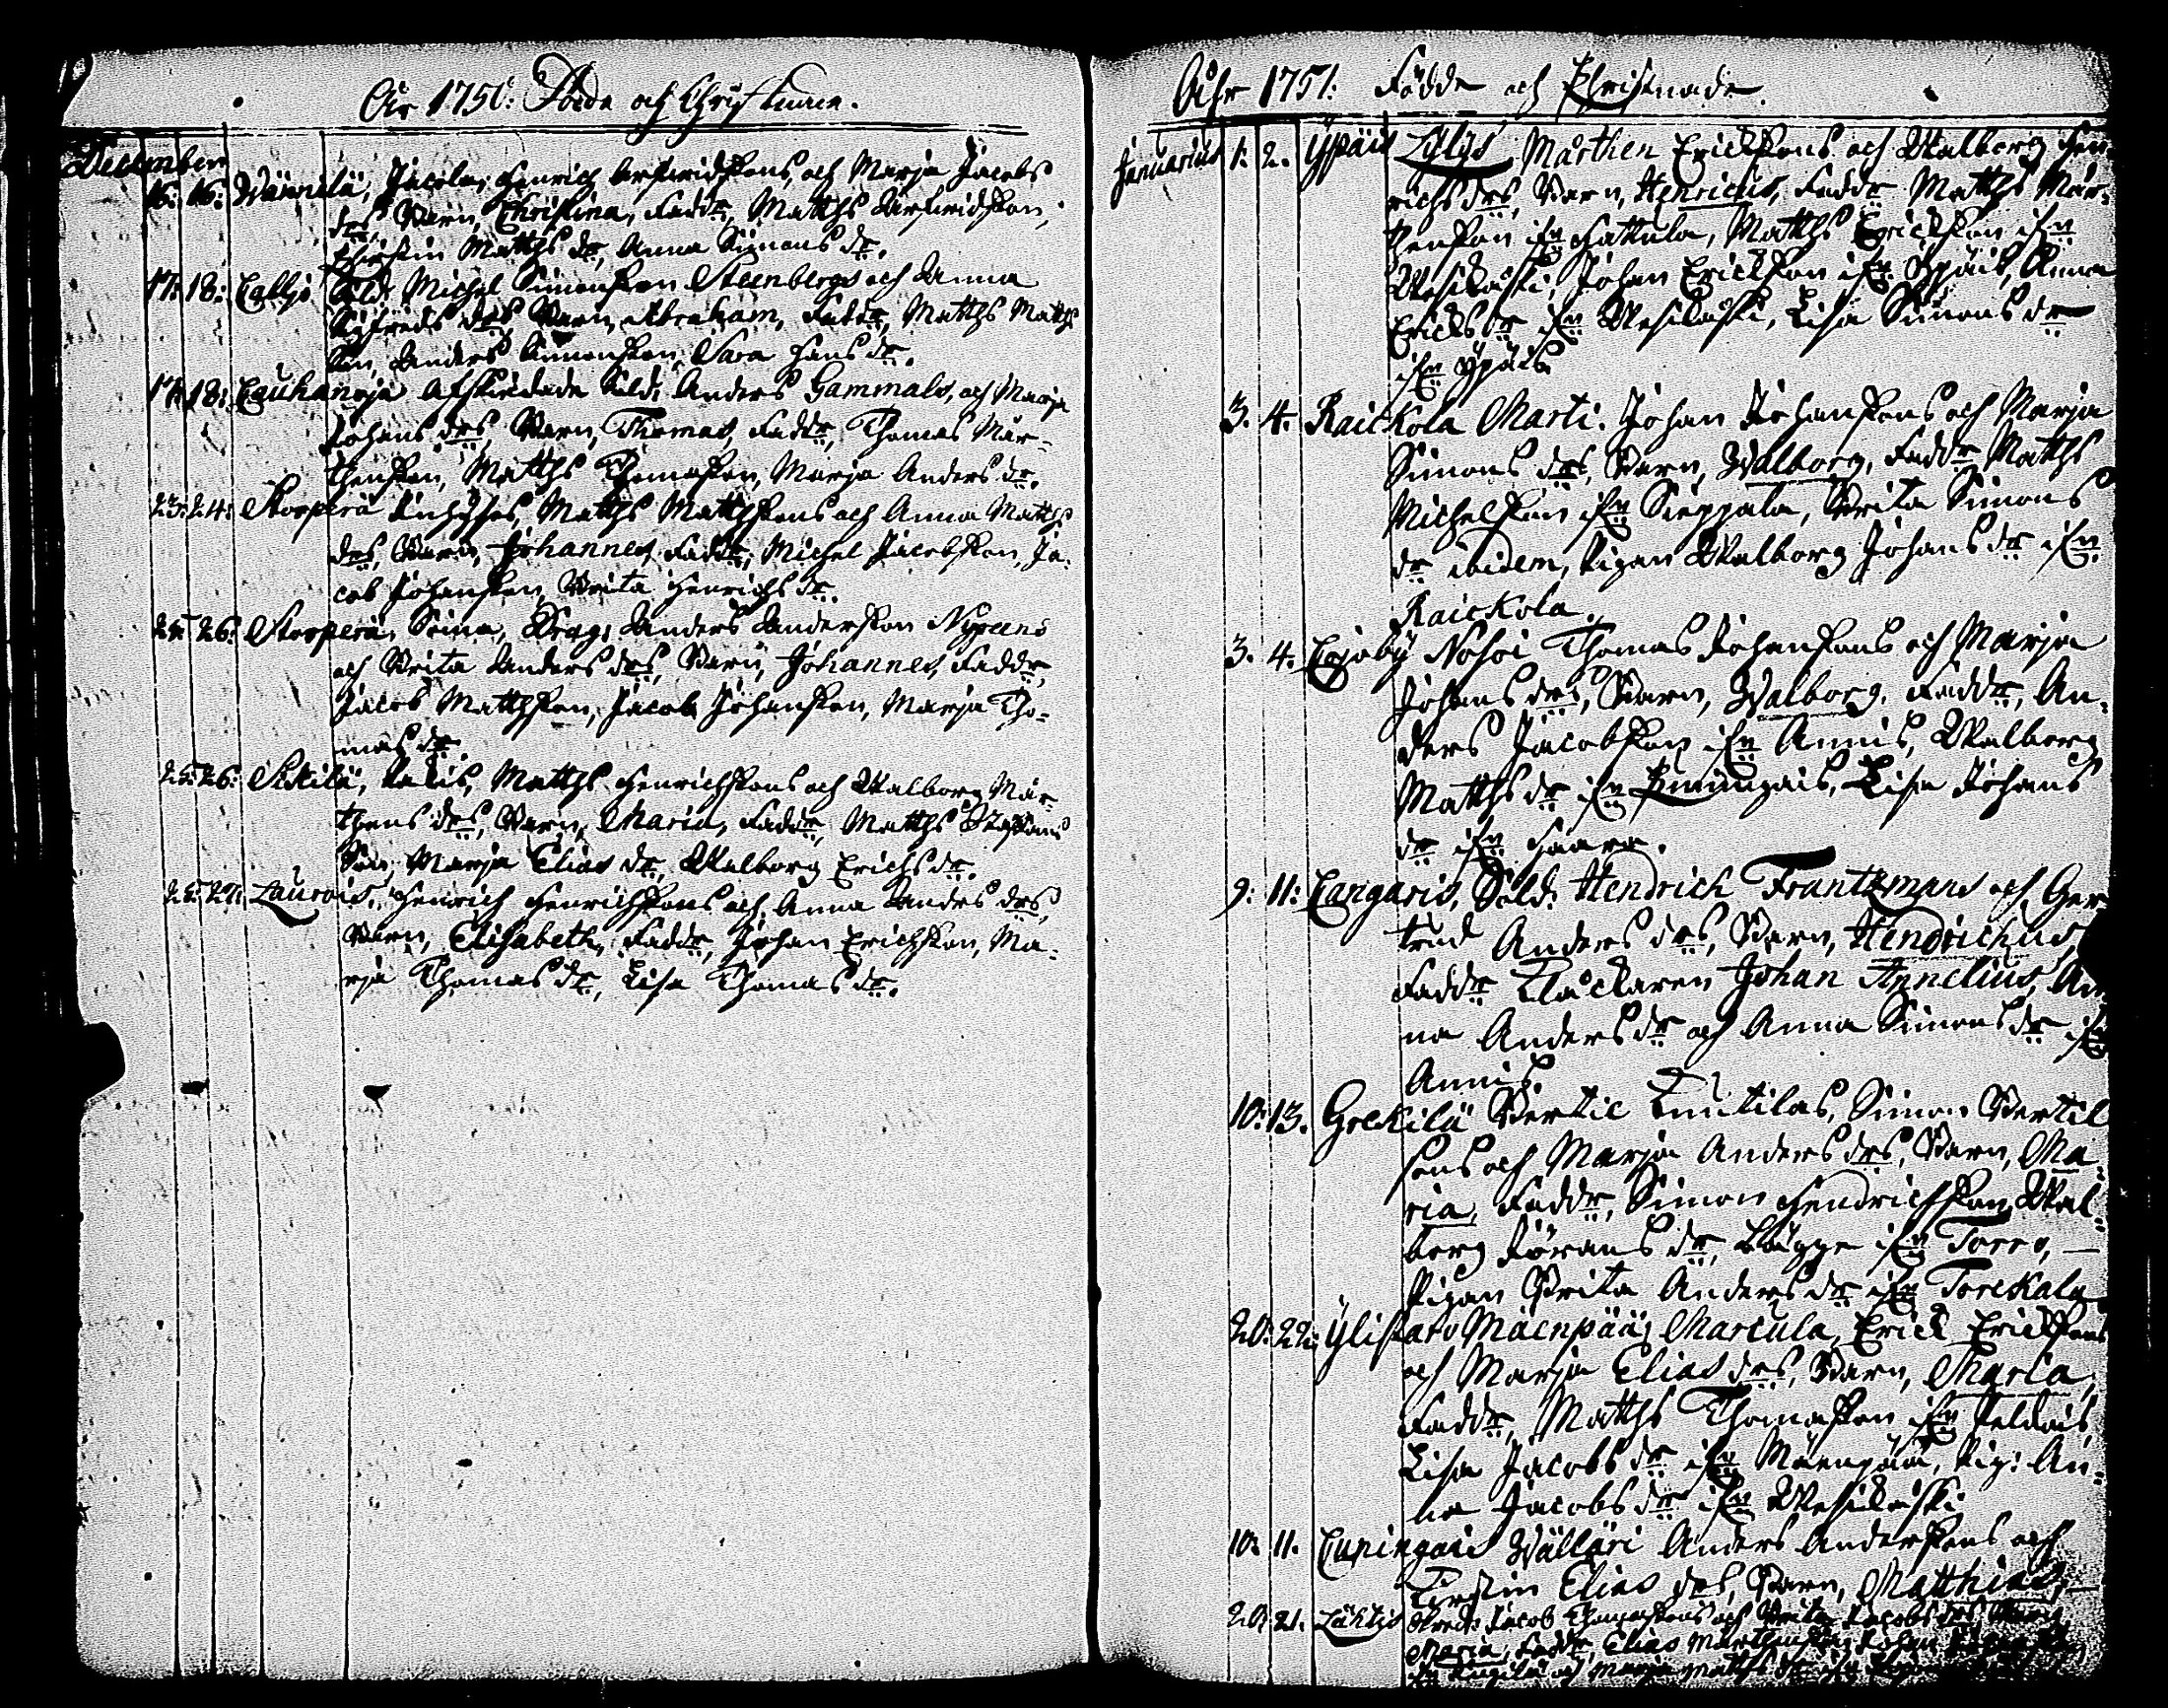 Åhr 1750: Födde och Christnade.
December
16: 16: Wännilä, Jacola, Henrich Arfwidssons, och Marja Jacobs
drs, Barn, Christina, Faddr, Matths Arfwidsson,
Kirstin Matths dr, Anna Simons dr.
17: 18: Sold: Michel Simonsson Steenbergs och Anna
Sigfreds drs, Barn, Abraham, Faddr, Matths Matths
Son, Anders Simonsson, Sara Hans dr.
17: 18: Cauhanoja Afskedade Sold: Anders Gammals, och Marja
Johans drs, Barn, Thomas, Faddr, Thomas Mår-
thensson, Matths Thomasson, Marja Anders dr.
23: 24: Skorperä Inhyses, Matths Matthssons och Anna Matths
drs, Barn, Johannes, Faddr, Michel Jacobsson, Ja-
cob Johansson, Brita Henrichs dr.
25: 26: Skorperä, Drag: Anders Andersson Nypeens
och Brita Anders drs, Barn, Johannes, Faddr,
Jacob Matthsson, Jacob Johansson, Marja Tho-
mas dr.
25: 26: Sikilä, Matths Henrichssons och Walborg Mår-
thens drs, Barn, Maria, Faddr, Matths
Son, Marja Elias dr, Walborg Erichs dr.
25: 27: Laurois, Henrich Henrichssons och Anna Anders drs,
Barn, Elisabeth, Faddr, Johan Erichsson, Ma-
rja Thomas dr, Lisa Thomas dr.
Åhr 1751: Födde och Christnade.
Januarius 1: 2. Ypäis Mårthen Ericksons och Walborg Hen-
richs drs, Barn, Henricus, Faddr Matths Mår-
thensson ifrn Hattula, Matths Erickson ifrn
Wesikoski, Johan Erickson ifrn Ypäis, Anna
Ericks dr ifrn Wesikoski, Lisa Simons dr
ifrn Ypäis.
3. 4. Raickola Marti. Johan Johanssons och Marja
Simons drs, Barn, Walborg, Faddr Matths
Michelsson ifrn Sieppala, Brita Simons
dr ibidem, Pigan Walborg Johans dr ifrn
Raickola.
3. 4. Cojoby Nohoi Thomas Johanssons och Marja
Johans drs, Barn, Walborg, Faddr, An-
ders Jacobsson ifrn Annis, Walborg
Matths dr ifrn Lisa Johans
dr ifrn Haara.
9: 11: Cangaris, Sold: Hendrich Frantzmans och Ger
trud Anders drs, Barn, Hendrichus,
Faddr Klåckaren Johan Annelius, An
na Anders dr och Anna Simons dr ifrn
Annis.
10: 13. Greckilä Bertil Knutilas, Simon Bertil
sons och Marja Anders drs, Barn, Ma-
ria, Faddr, Simon Hendrichsson, Wal-
borg Jörans dr, ifrn Torro,
Pigan Brita Anders dr ifrn Torekala
20: 22: Ylistaro Mäenpää, Marcula, Erick Ericksons
och Marja Elias drs, Barn, Maria,
Faddr, Matths Thomasson ifrn Peldois,
Lisa Jacobs dr ifrn Mäenpää, Pig: An-
na Jacobs dr ifrn Wesikoski.
10: 11. Cupingois Wälläri Anders Anderssons och
Kirstin Elias drs, Barn, Matthias,
20: 21. Lähtis Jacob Thomassons och Brita Jacobs drs Barn
Maria, Faddr, Elias Mårthensson, Johan
och Marja Matths dr